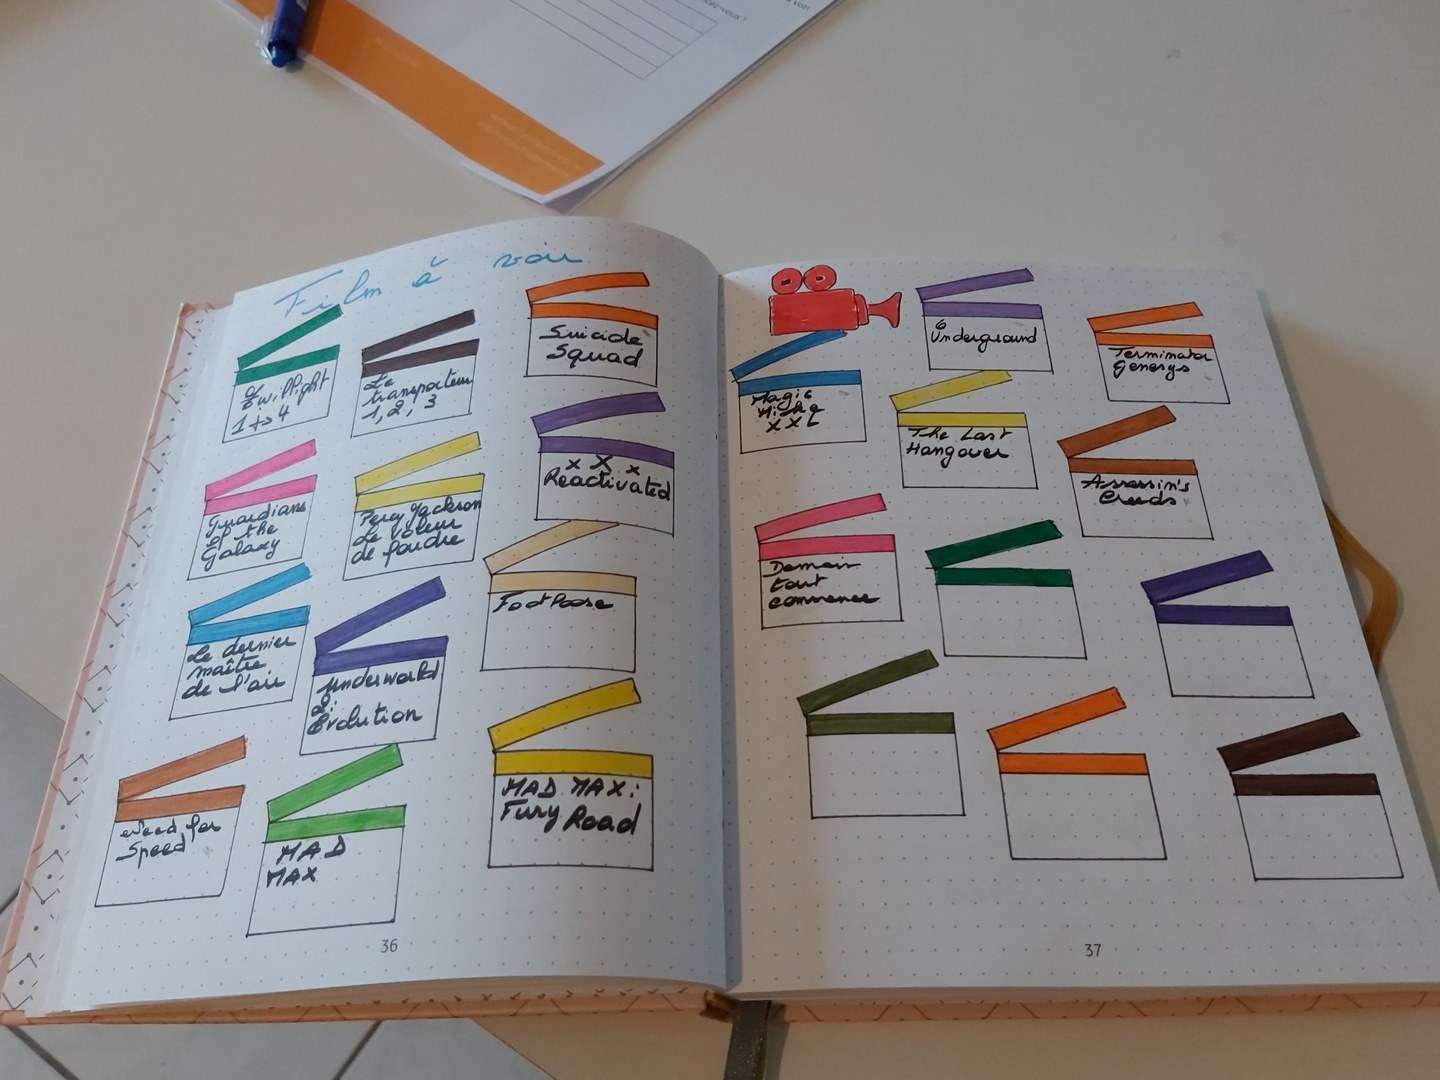 Film à voir
Twilight
1 à 4
Le
transporteur
1, 2, 3
Suicide
Squad
Guardians
of the
Galaxy
Percy Jackson
Le voleur
de foudre
X X X
Reactivated
Le dernier
maître
de l'air
Underworld
2:
Evolution
Footloose
Need for
Speed
MAD
MAX
MAD MAX:
Fury Road
36
6
Underground
Terminator
Genesys
Magic
Mike
XXL
The Last
Hangover
Assassin's
Creeds
Demain
tout
commence
37